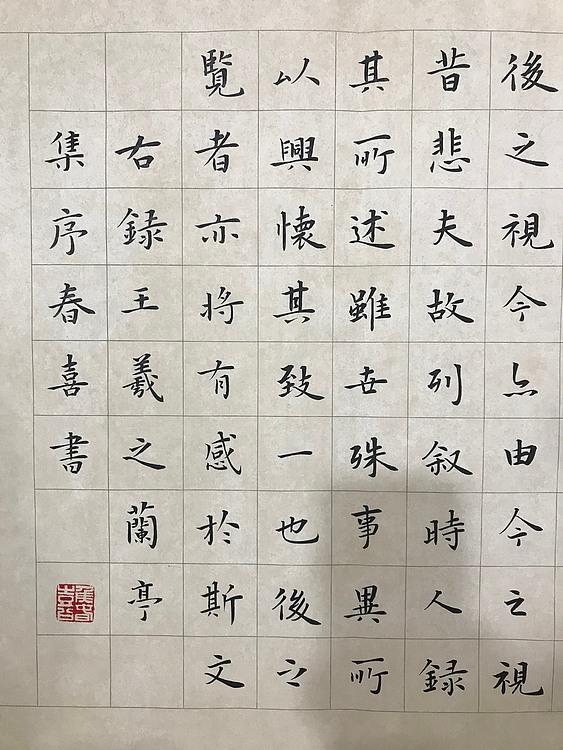 後之視今亦由今之視
昔悲夫故列叙時人録
其所述雖世殊事異所
以興懷其致一也後之
覽者亦将有感於斯文
右録王羲之蘭亭
集序春喜書